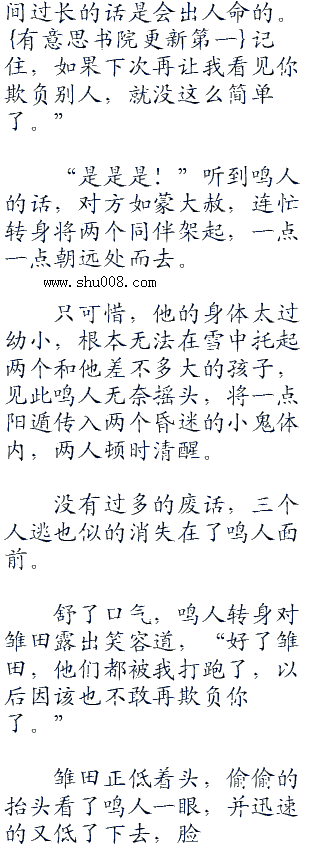 间过长的话是会出人命的。
{有意思书院更新第一}记
住，如果下次再让我看见你
欺负别人，就没这么简单
了。”
“是是是！”听到鸣人
的话，对方如蒙大赦，连忙
转身将两个同伴架起，一点
一点朝远处而去。
www.shu008.com
只可惜，他的身体太过
幼小，根本无法在雪中托起
两个和他差不多大的孩子，
见此鸣人无奈摇头，将一点
阳遁传入两个昏迷的小鬼体
内，两人顿时清醒。
没有过多的废话，三个
人逃也似的消失在了鸣人面
前。
舒了口气，鸣人转身对
雏田露出笑容道，“好了雏
田，他们都被我打跑了，以
后因该也不敢再欺负你
了。”
雏田正低着头，偷偷的
抬头看了鸣人一眼，并迅速
的又低了下去，脸